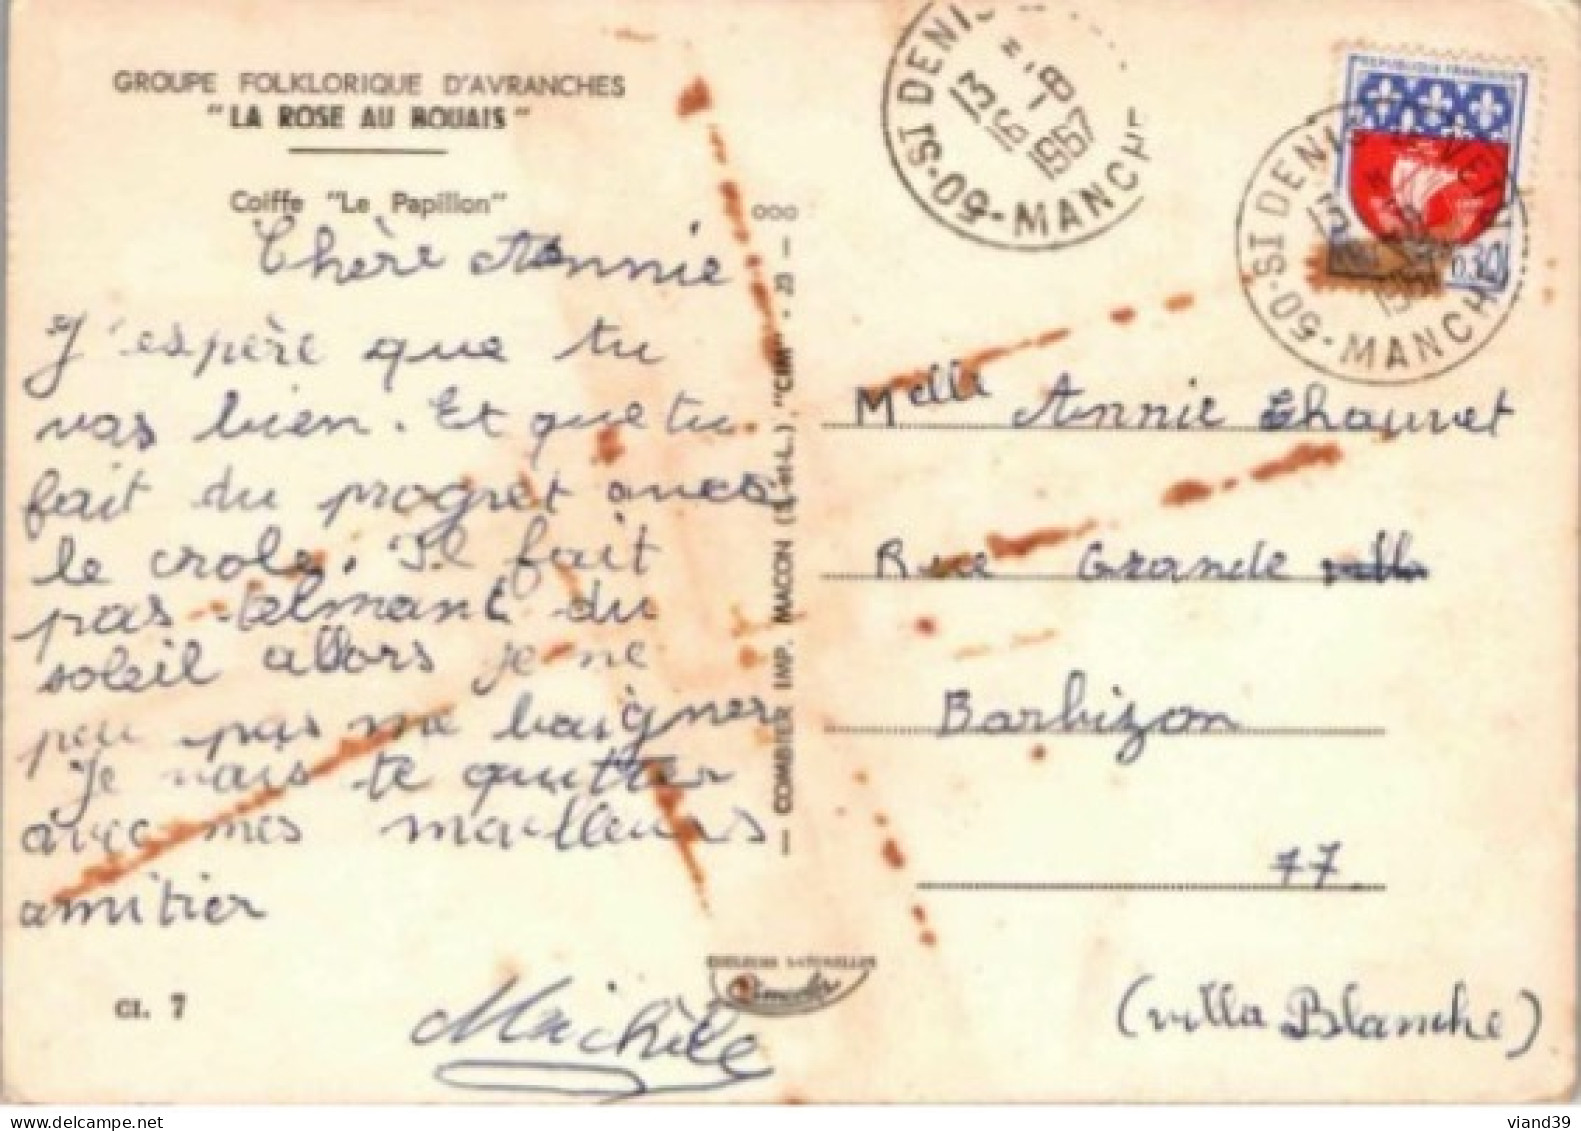 GROUPE FOLKLORIQUE D'AVRANCHES
"LA ROSE AU BOUAIS"
Coiffe "Le Papillon"
Chère Annie
J'espère que tu
vas bien. Et que tu
fait du progret avec
le crole. Il fait
pas telmant du
soleil allors je ne
peu pas me baigner
Je vais te quitter
avec mes meilleurs
amitier
Michèle
Cl. 7
— COMBIER IMP. MACON (S.-et-L.), "CIM" - 23 — 000
COULEURS NATURELLES
Cimcolor
ST DENIS
50 - MANCHE
13 H
16 - 8
1967
RÉPUBLIQUE FRANÇAISE
0,30
ST DENIS LE VETU
50 - MANCHE
Melle Annie Chauvet
Rue Grande
Barbizon
77
(villa Blanche)
viand39